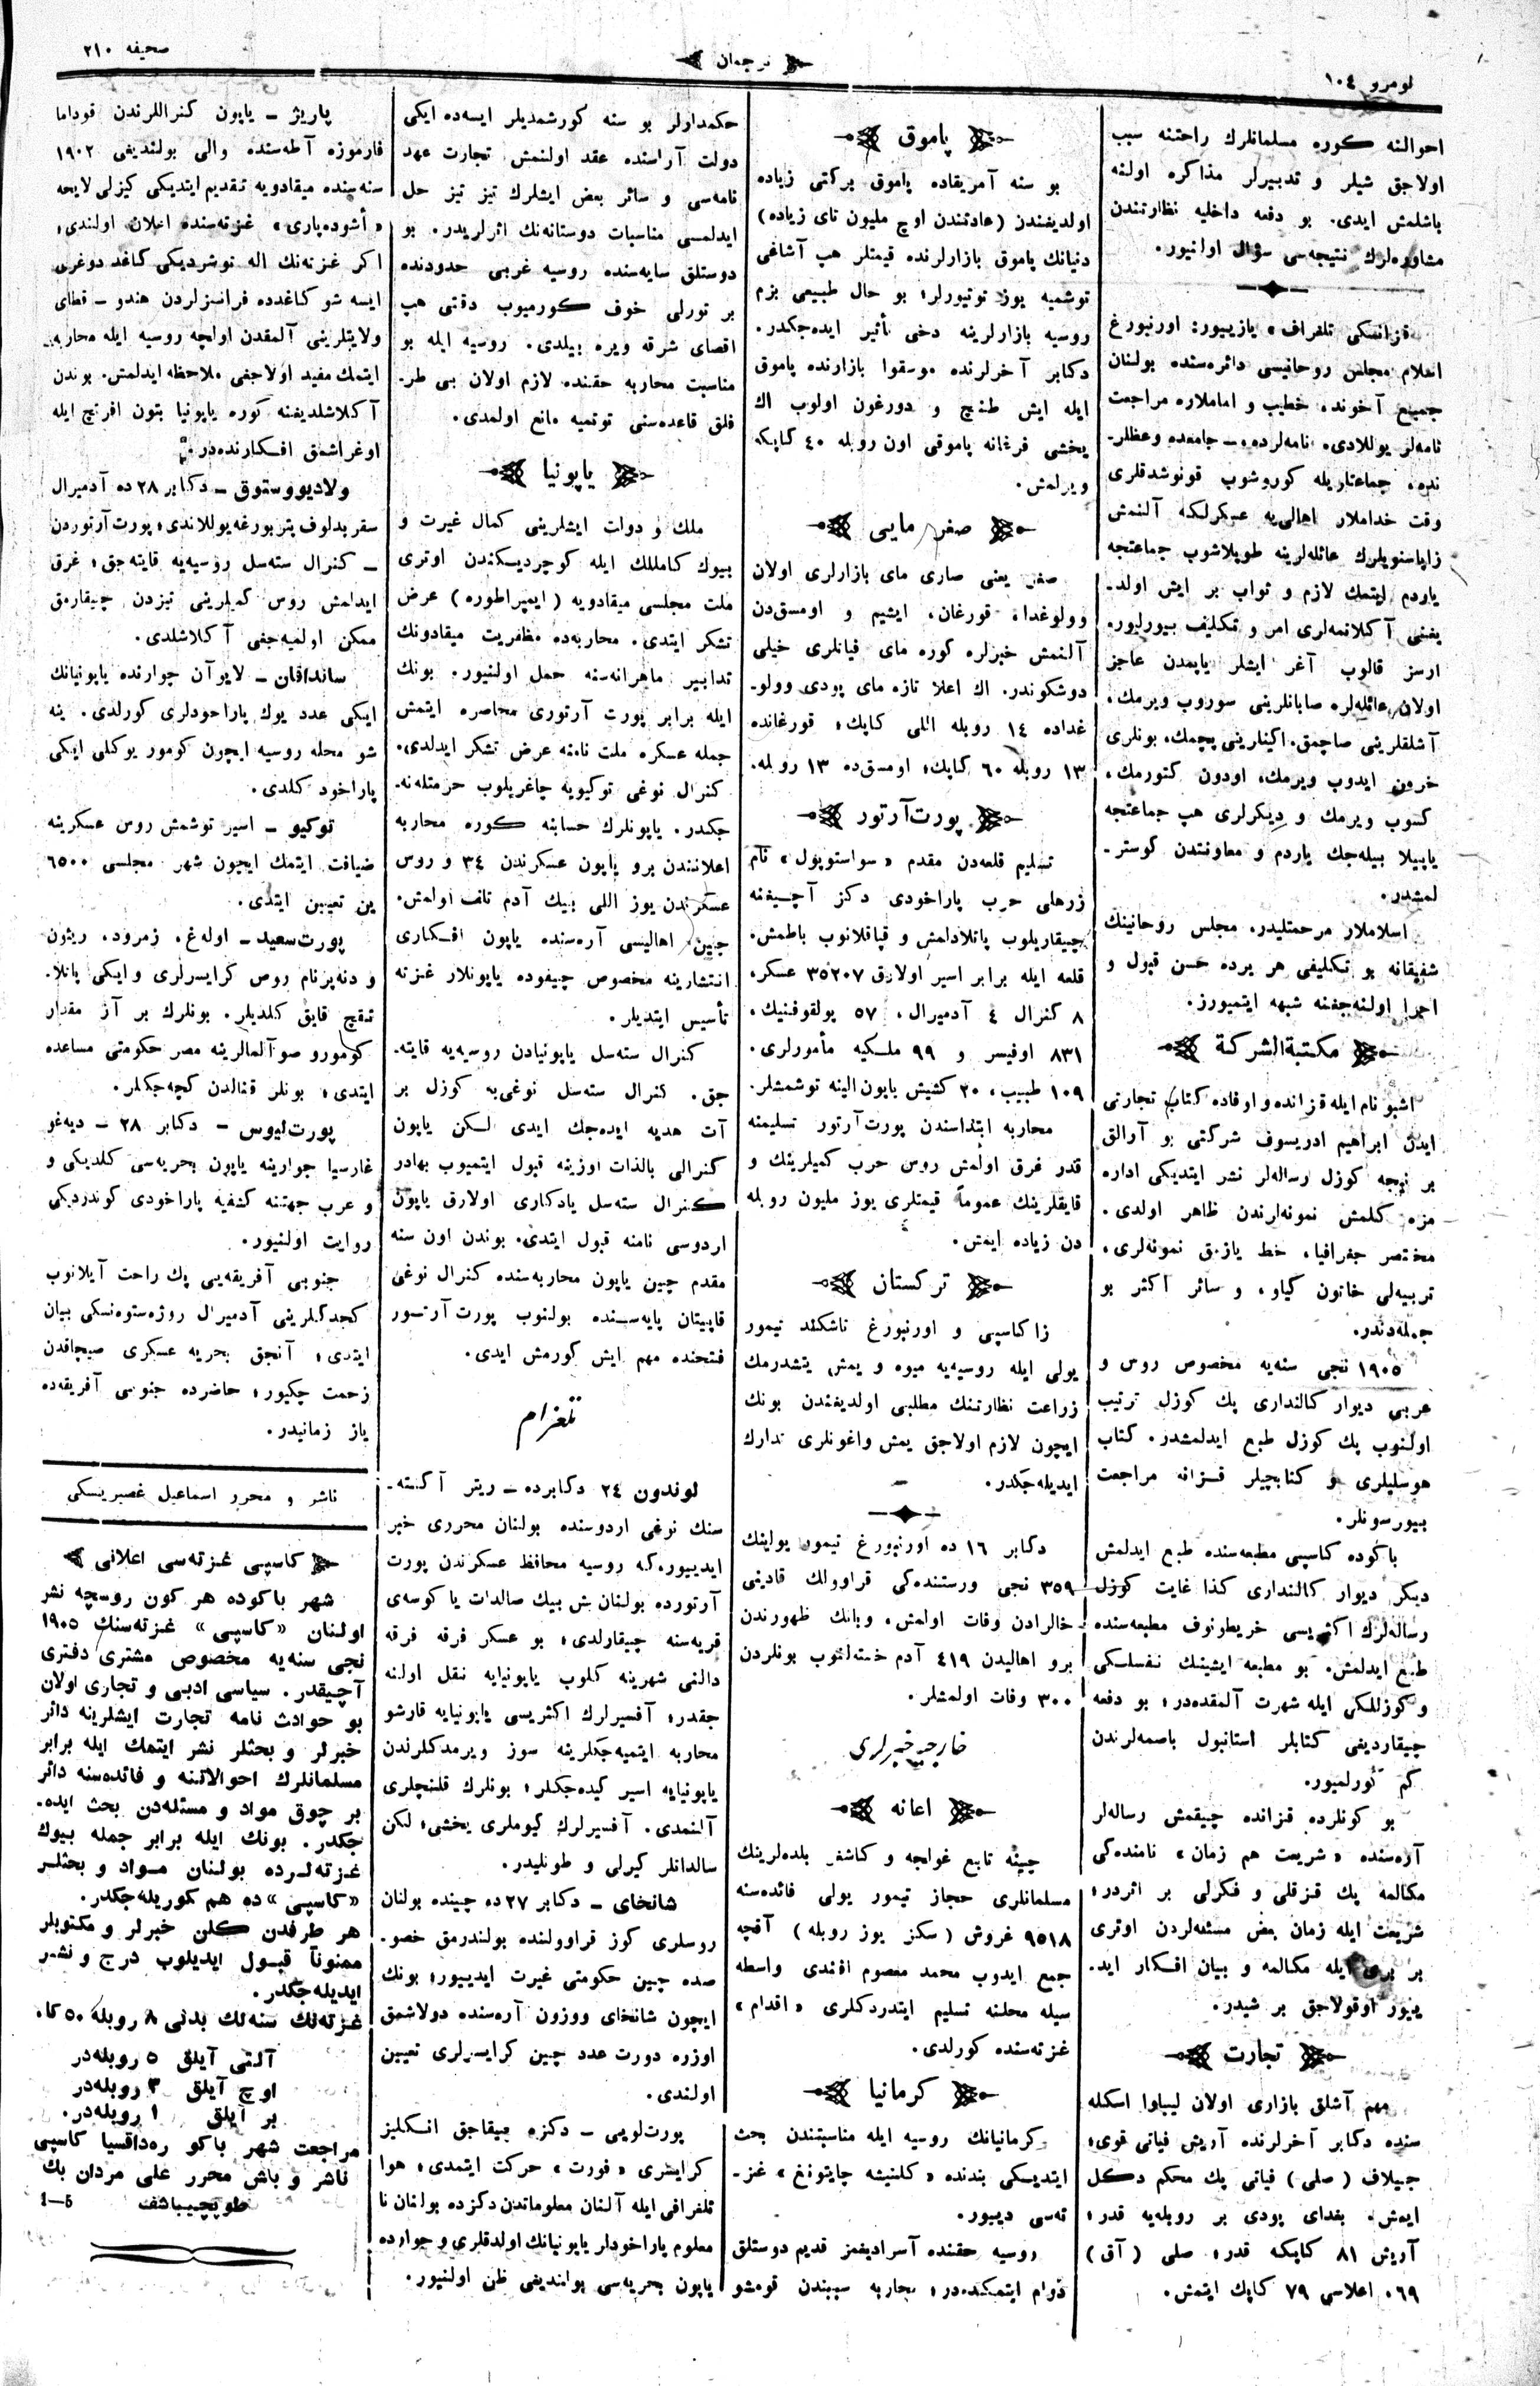 لومرو ١٠٤
ترجمان
صحيفه ٢١٠
احوالنه كوره مسلمانلرك راحتنه سبب
اولاجق شيلر و تدبيرلر مذاكره اولنه
باشلمش ايدى. بو دفعه داخليه نظارتندن
مشاوره‌لرك نتيجه‌سى سؤال اولنيور.
«قزانسكى تلغراف» يازييور: اورنبورغ
اعلام مجلس روحانيسى دائره‌سنده بولنان
جميع آخوند، خطيب و اماملاره مراجعت
نامه‌لر يوللادى. نامه‌لرده، ـ جامعده وعظلر-
نده، جماعتاريله كوروشوب قونوشدقلرى
وقت خداملار اهالى‌يه عسكرلكه آلنمش
زاپاسنويلرك عائله‌لرينه طوپلاشوب جماعتجه
ياردم ايتمك لازم و ثواب بر ايش اولد-
يغنى آكلاتمه‌لرى امر و تكليف بيورليور.
ارسز قالوب آغر ايشلر ياپمدن عاجز
اولان عائله‌لره صابانلرينى سوروب ويرمك،
آشلقلرينى صاچمق، اكينارينى پچمك، بونلرى
خرون ايدوب ويرمك، اودون كتورمك،
كسوب ويرمك و ديكرلرى هپ جماعتجه
ياپيلا بيله‌جك ياردم و معاونتدن كوستر-
لمشدر.
اسلاملار مرحمتليدر. مجلس روحانينك
شفيقانه بو تكليفى هر يرده حسن قبول و
اجرا اولنه‌جغنه شبهه ايتميورز.
مكتبة‌الشركة
اشبو نام ايله قزانده و اوفاده كتاب تجارتى
ايدن ابراهيم ادريسوف شركتى بو آرالق
بر نيجه كوزل رساله‌لر نشر ايتديكى اداره
مزه كلمش نمونه‌لرندن ظاهر اولدى.
مختصر جغرافيا، خط يازمق نمونه‌لرى،
تربيه‌لى خاتون گياو، و سائر اكثر بو
جمله‌دندر.
١٩٠٥ نجى سنه‌يه مخصوص روس و
عربى ديوار كالندارى پك كوزل ترتيب
اولنوب پك كوزل طبع ايدلمشدر. كتاب
هوسليلرى و كتابچيلر قزانه مراجعت
بيورسونلر.
باكوده كاسپى مطبعه‌سنده طبع ايدلمش
ديكر ديوار كالندارى كذا غايت كوزل
رساله‌لرك اكثريسى خريطونوف مطبعه‌سنده
طبع ايدلمش. بو مطبعه ايشينك نفسلكى
و كوزللكى ايله شهرت آلمقده‌در؛ بو دفعه
چيقارديغى كتابلر استانبول باصمه‌لرندن
كم كورلميور.
بو كونلرده قزانده چيقمش رساله‌لر
آره‌سنده «شريعت هم زمان» نامنده‌كى
مكالمه پك قزقلى و فكرلى بر اثردر؛
شريعت ايله زمان بعض مسئله‌لردن اوترى
بر برى ايله مكالمه و بيان افكار ايد-
ييور اوقولاجق بر شيدر.
تجارت
مهم آشلق بازارى اولان ليباوا اسكله
سنده دكابر آخرلرنده آريش فياتى قوى؛
جيلاف (صلى) فياتى پك محكم دكل
ايمش. بغداى پودى بر روبله‌يه قدر؛
آريش ٨١ كاپكه قدر؛ صلى (آق)
٦٩، اعلاسى ٧٩ كاپك ايتمش.
پاموق
بو سنه آمريقاده پاموق بركتى زياده
اولديغندن (عادتندن اوچ مليون تاى زياده)
دنيانك پاموق بازارلرنده قيمتلر هپ آشاغى
توشميه يوز توتيورلر؛ بو حال طبيعى بزم
روسيه بازارلرينه دخى تأثير ايده‌جكدر.
دكابر آخرلرنده موسقوا بازارنده پاموق
ايله ايش طنچ و دورغون اولوب اك
يخشى فرغانه پاموقى اون روبله ٤٠ كاپكه
ويرلمش.
صغر مايى
صغر يعنى صارى ماى بازارلرى اولان
وولوغدا، قورغان، ايشيم و اومسق‌دن
آلنمش خبرلره كوره ماى فياتلرى خيلى
دوشكوندر. اك اعلا تازه ماى پودى وولو-
غداده ١٤ روبله اللى كاپك؛ قورغانده
١٣ روبله ٦٠ كاپك؛ اومسق‌ده ١٣ روبله.
پورت‌آرتور
تسليم قلعه‌دن مقدم «سواستوپول» نام
زرهلى حرب پاراخودى دكز آچيغنه
چيقاريلوب پاتلادلمش و قپاقلانوب باطمش.
قلعه ايله برابر اسير اولارق ٣٥٢٠٧ عسكر،
٨ كنرال ٤ آدميرال، ٥٧ پولقوفنيك،
٨٣١ اوفيسر و ٩٩ ملكيه مأمورلرى.
١٠٩ طبيب، ٢٠ كشيش ياپون الينه توشمشلر.
محاربه ابتداسندن پورت‌آرتور تسليمنه
قدر غرق اولمش روس حرب كميلرينك و
قايقلرينك عموماً قيمتلرى يوز مليون روبله
دن زياده ايمش.
تركستان
زاكاسپى و اورنبورغ تاشكند تيمور
يولى ايله روسيه‌يه ميوه و يمش يتشدرمك
زراعت نظارتنك مطلبى اولديغندن بونك
ايچون لازم اولاجق يمش واغونلرى تدارك
ايديله‌جكدر.
دكابر ١٦ ده اورنبورغ تيمور يولينك
٣٥٩ نجى ورستنده‌كى قراوولك قادينى
خالرادن وفات اولمش، وبانك ظهورندن
برو اهاليدن ٤١٩ آدم خسته‌لنوب بونلردن
٣٠٠ وفات اولمشلر.
خارجيه خبرلرى
اعانه
چينه تابع غولجه و كاشغر بلده‌لرينك
مسلمانلرى حجاز تيمور يولى فائده‌سنه
٩٥١٨ غروش (سكز يوز روبله) آقچه
جمع ايدوب محمد معصوم افندى واسطه
سيله محلنه تسليم ايتدردكلرى «اقدام»
غزته‌سنده كورلدى.
كرمانيا
كرمانيانك روسيه ايله مناسبتندن بحث
ايتديكى بندنده «كلنيشه چايتونغ» غز-
ته‌سى دييور.
روسيه حقنده آسراديغمز قديم دوستلق
دوام ايتمكده‌در؛ محاربه سببندن قومشو
حكمداولر بو سنه كورشمديلر ايسه‌ده ايكى
دولت آراسنده عقد اولنمش تجارت عهد
نامه‌سى و سائر بعض ايشلرك تيز تيز حل
ايدلمسى مناسبات دوستانه‌نك اثرلريدر. بو
دوستلق سايه‌سنده روسيه غربى حدودنده
بر تورلى خوف كورميوب دقتى هپ
اقصاى شرقه ويره بيلدى. روسيه ايله بو
مناسبت محاربه حقنده لازم اولان بى طر-
فلق قاعده‌سنى توتميه مانع اولمدى.
ياپونيا
ملك و دولت ايشلرينى كمال غيرت و
بيوك كامللك ايله كوچرديكندن اوترى
ملت مجلسى ميقادويه (ايمپراطوره) عرض
تشكر ايتدى. محاربه‌ده مظفريت ميقادونك
تدابير ماهرانه‌سنه حمل اولنيور. بونك
ايله برابر پورت آرتورى محاصره ايتمش
جمله عسكره ملت نامنه عرض تشكر ايدلدى.
كنرال نوغى توكيويه چاغريلوب حرمتله‌نه-
جكدر. ياپونلرك حسابنه كوره محاربه
اعلانندن برو ياپون عسكرندن ٣٤ و روس
عسكرندن يوز اللى بيك آدم تلف اولمش.
چين اهاليسى آره‌سنده ياپون افكارى
انتشارينه مخصوص چيفوده ياپونلار غزته
تأسيس ايتديلر.
كنرال سته‌سل ياپونيادن روسيه‌يه قايته-
جق. كنرال سته‌سل نوغى‌يه كوزل بر
آت هديه ايده‌جك ايدى لكن ياپون
كنرالى بالذات اوزينه قبول ايتميوب بهادر
كنرال سته‌سل يادكارى اولارق ياپون
اردوسى نامنه قبول ايتدى. بوندن اون سنه
مقدم چين ياپون محاربه‌سنده كنرال نوغى
قاپيتان پايه‌سنده بولنوب پورت آرتور
فتحنده مهم ايش كورمش ايدى.
تلغرام
لوندون ٢٤ دكابرده ـ ريتر آكنته-
سنك نوغى اردوسنده بولنان محررى خبر
ايدييور، كه روسيه محافظ عسكرندن پورت
آرتورده بولنان بش بيك صالدات ياكوسه‌ى
قريه‌سنه چيقارلدى؛ بو عسكر فرقه فرقه
دالنى شهرينه كلوب ياپونيايه نقل اولنه
جقدر؛ آفسيرلرك اكثريسى ياپونيايه قارشو
محاربه ايتميه‌جكلرينه سوز ويرمدكلرندن
ياپونيايه اسير كيده‌جكلر؛ بونلرك قلنچلرى
آلنمدى. آفسيرلرك كيوملرى يخشى؛ لكن
سالداتلر كيرلى و طونليدر.
شانخاى ـ دكابر ٢٧ ده چينده بولنان
روسلرى كوز قراوولنده بولندرمق خصو-
صده چين حكومتى غيرت ايدييور؛ بونك
ايچون شانخاى ووزون آره‌سنده دولاشمق
اوزره دورت عدد چين كرايسرلرى تعيين
اولندى.
پورت‌لويى ـ دكزه چيقاجق انكليز
كرايسرى «فورت» حركت ايتمدى؛ هوا
تلغرافى ايله آلنان معلوماتدن دكزده بولنان نا
معلوم پاراخودلر ياپونيانك اولدقلرى و جوارده
ياپون بحريه‌سى بولنديغى ظن اولنيور.
پاريژ ـ ياپون كنراللرندن قوداما
فارموزه آطه‌سنده والى بولنديغى ١٩٠٢
سنه‌سنده ميقادويه تقديم ايتديكى كيزلى لايحه
«أشوده‌پارى» غزته‌سنده اعلان اولندى؛
اكر غزته‌نك اله توشرديكى كاغد دوغرى
ايسه شو كاغدده فرانسزلردن هندو ـ قطاى
ولايتلرينى آلمقدن اولجه روسيه ايله محاربه
ايتمك مفيد اولاجغى ملاحظه ايدلمش. بوندن
آكلاشلديغنه كوره ياپونيا بتون افرنج ايله
اوغراشمق افكارنده‌در.
ولاديووستوق ـ دكابر ٢٨ ده آدميرال
سقريدلوف پتربورغه يوللاندى؛ پورت آرتوردن
ـ كنرال سته‌سل روسيه‌يه قايته جق؛ غرق
ايدلمش روس كميلرينى تيزدن چيقارمق
ممكن اولميه‌جغى آكلاشلدى.
سانداقان ـ لابوآن جوارنده ياپونيانك
ايكى عدد يوك پاراخودلرى كورلدى. ينه
شو محله روسيه ايچون كومور يوكلى ايكى
پاراخود كلدى.
توكيو ـ اسير توشمش روس عسكرينه
ضيافت ايتمك ايچون شهر مجلسى ٦٥٠٠
ين تعيين ايتدى.
پورت‌سعيد ـ اولەغ، زمرود، ريئون
و دنه‌پر نام روس كرايسرلرى و ايكى پاتلا-
تقچ قايق كلديلر. بونلرك بر آز مقدار
كومور و صو آلمالرينه مصر حكومتى مساعده
ايتدى؛ بونلر قنالدن كچه‌جكلر.
پورت‌ليوس ـ دكابر ٢٨ ـ ديه‌غو
غارسيا جوارينه ياپون بحريه‌سى كلديكى و
و عرب جهتنه كشفيه پاراخودى كوندرديكى
روايت اولنيور.
جنوبى آفريقه‌يى پك راحت آيلانوب
كچدكلرينى آدميرال روژه‌ستوه‌نسكى بيان
ايتدى؛ آنجق بحريه عسكرى صيجاقدن
زحمت چكيور؛ حاضرده جنوبى آفريقه‌ده
ياز زمانيدر.
ناشر و محرر اسماعيل غصبرينسكى
كاسپى غزته‌سى اعلانى
شهر باكوده هر كون روسچه نشر
اولنان «كاسپى» غزته‌سنك ١٩٠٥
نجى سنه‌يه مخصوص مشترى دفترى
آچيقدر. سياسى ادبى و تجارى اولان
بو حوادث نامه تجارت ايشلرينه دائر
خبرلر و بحثلر نشر ايتمك ايله برابر
مسلمانلرك احوالاتنه و فائده‌سنه دائر
بر چوق مواد و مسئله‌دن بحث ايده-
جكدر. بونك ايله برابر جمله بيوك
غزته‌لرده بولنان مواد و بحثلر
«كاسپى» ده هم كوريله‌جكدر.
هر طرفدن كلن خبرلر و مكتوبلر
ممنوناً قبول ايديلوب درج و نشر
ايديله‌جكدر.
غزته‌نك سنه‌لك بدلى ٨ روبله ٥٠ كا.
آلتى آيلق ٥ روبله‌در
اوچ آيلق ٣ روبله‌در
بر آيلق ١ روبله‌در.
مراجعت شهر باكو ره‌داقسيا كاسپى
ناشر و باش محرر على مردان بك
طوپچيباشف 1—5